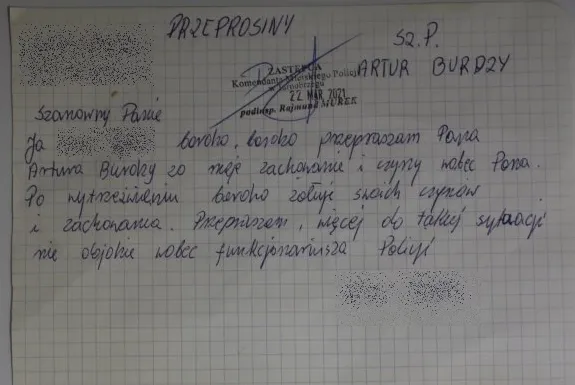 PRZEPROSINY
Sz. P.
ARTUR BURDZY
ZASTĘPCA
Komendanta Miejskiego Policji
w Tarnobrzegu
22. MAR 2021
podinsp. Rajmund MUREK
Szanowny Panie
Ja bardzo, bardzo przepraszam Pana
Artura Burdzy za moje zachowanie i czyny wobec Pana.
Po wytrzeźwieniu bardzo żałuję swoich czynów
i zachowania. Przepraszam, więcej do takiej sytuacji
nie dojdzie wobec funkcjonariusza Policji